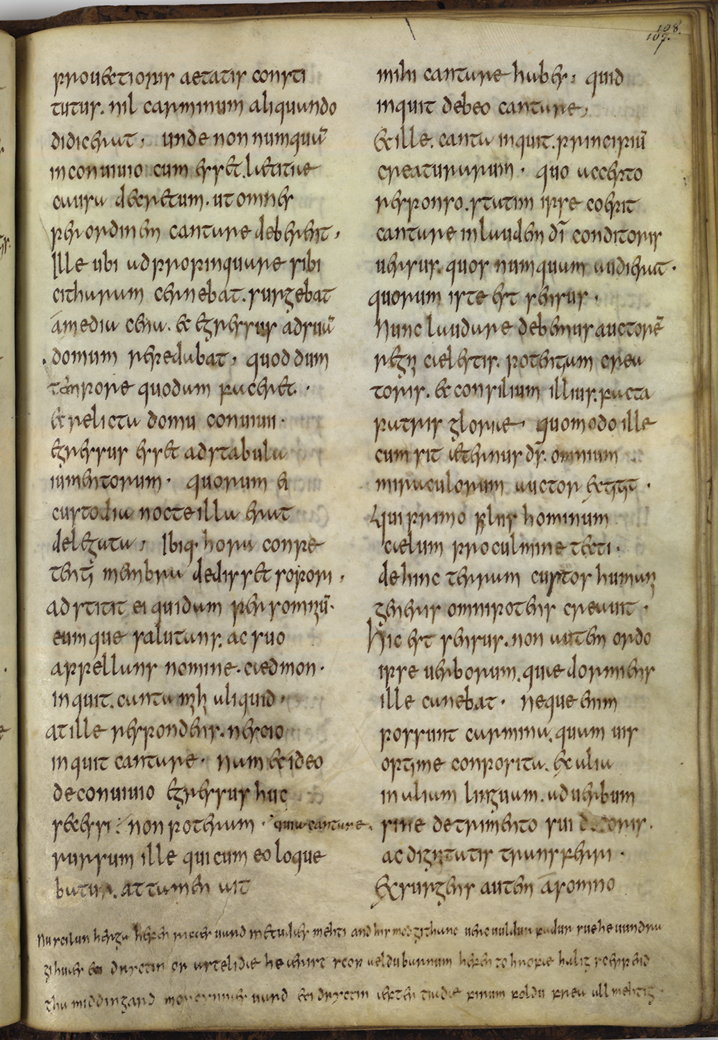 108.
107.
prouectioris aetatis consti
tutus. nil carminum aliquando
didicerat, unde non numquā
in conuiuio cum esset laetitiae
causa decretum. ut omnes
per ordinem cantare deberent,
Ille ubi adpropinquare sibi
citharam cernebat. surgebat
a media caena. & egressus adsuā
domum repedabat. quod dum
tempore quodam faceret.
& relicta domu conuiui.
egressus esset adstabula
iumentorum. quorum ei
custodia nocte illa erat
delegata, Ibiq; hora conpe
tenti membra dedisset sopori.
adstitit ei quidam per somniū.
eumque salutans. ac suo
appellans nomine. caedmon.
inquit. canta mihi aliquid.
at ille respondens. nescio
inquit cantare. nam & ideo
de conuiuio egressus huc
secessi. non poteram. quia cantare.
rursum ille qui cum eo loque
batur. attamen ait
mihi cantare habes. quid
inquit debeo cantare,
& ille. canta inquit. principiū
creaturarum. quo accepto
responso. statim ipse coepit
cantare in laudem dī conditoris
uersus. quos numquam audierat.
quorum iste est sensus.
Nunc laudare debemus auctorē
regni caelestis. potentiam crea
toris. & consilium illius. facta
patris gloriae, quomodo ille
cum sit aeternus d̄s. omnium
miraculorum auctor extitit.
Qui primo filiis hominum
caelum pro culmine tecti.
dehinc terram custos humani
generis omnipotens creauit.
Hic est sensus. non autem ordo
ipse uerborum. quae dormiens
ille canebat. neque enim
possunt carmina. quam uis
optime conposita. ex alia
in aliam linguam. ad uerbum
sine detrimento sui decoris.
ac dignitatis transferri.
Exsurgens autem a somno
nu scilun herga hefen ricaes uard metudaes mehti and his modgithanc uerc uuldur fadur sue he uundra
gihuaes eci dryctin or astelidae he aerist scop aeldu barnum hefen to hrofae halig sceppend
tha middingard moncynnes uard eci dryctin aefter tiadae firum foldu frea allmehtig.